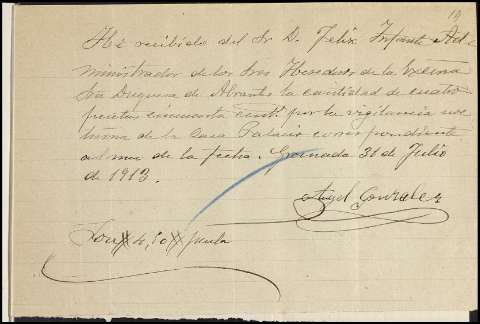 19
He recibido del Sr D. Felix Infante Ad-
ministrador de los Sres Herederos de la Excma
Sra Duquesa de Abrantes la cantidad de cuatro
pesetas cincuenta cents por la vigilancia noc
turna de la Casa Palacio correspondiente
al mes de la fecha. Granada 31 de Julio
de 1913.
Angel Gonzalez
Son # 4,50 # pesetas